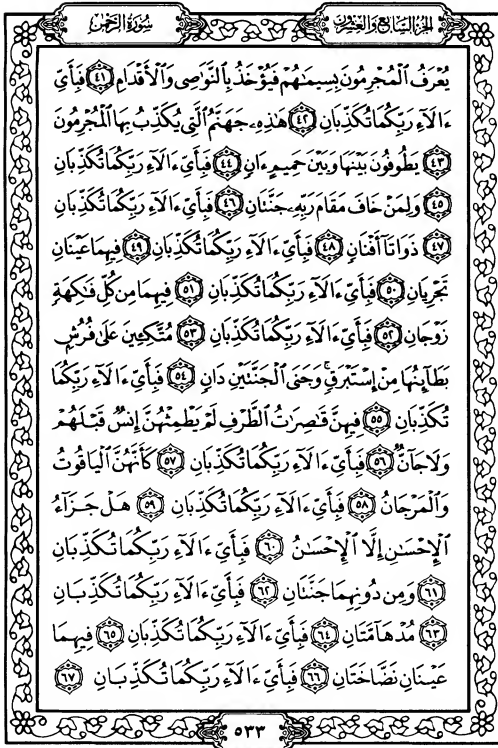 سُورَةُ الرَّحْمَٰن
الجُزءُ السَّابِعُ وَالعِشْرُونَ
يُعْرَفُ الْمُجْرِمُونَ بِسِيمَاهُمْ فَيُؤْخَذُ بِالنَّوَاصِي وَالْأَقْدَامِ ٤١ فَبِأَيِّ
ءَالَآءِ رَبِّكُمَا تُكَذِّبَانِ ٤٢ هَٰذِهِۦ جَهَنَّمُ الَّتِي يُكَذِّبُ بِهَا الْمُجْرِمُونَ
٤٣ يَطُوفُونَ بَيْنَهَا وَبَيْنَ حَمِيمٍ ءَانٍ ٤٤ فَبِأَيِّ ءَالَآءِ رَبِّكُمَا تُكَذِّبَانِ
٤٥ وَلِمَنْ خَافَ مَقَامَ رَبِّهِۦ جَنَّتَانِ ٤٦ فَبِأَيِّ ءَالَآءِ رَبِّكُمَا تُكَذِّبَانِ
٤٧ ذَوَاتَآ أَفْنَانٍ ٤٨ فَبِأَيِّ ءَالَآءِ رَبِّكُمَا تُكَذِّبَانِ ٤٩ فِيهِمَا عَيْنَانِ
تَجْرِيَانِ ٥٠ فَبِأَيِّ ءَالَآءِ رَبِّكُمَا تُكَذِّبَانِ ٥١ فِيهِمَا مِن كُلِّ فَٰكِهَةٍ
زَوْجَانِ ٥٢ فَبِأَيِّ ءَالَآءِ رَبِّكُمَا تُكَذِّبَانِ ٥٣ مُتَّكِـِٔينَ عَلَىٰ فُرُشٍ
بَطَآئِنُهَا مِنْ إِسْتَبْرَقٍ ۚ وَجَنَى الْجَنَّتَيْنِ دَانٍ ٥٤ فَبِأَيِّ ءَالَآءِ رَبِّكُمَا
تُكَذِّبَانِ ٥٥ فِيهِنَّ قَٰصِرَٰتُ الطَّرْفِ لَمْ يَطْمِثْهُنَّ إِنسٌ قَبْلَهُمْ
وَلَا جَآنٌّ ٥٦ فَبِأَيِّ ءَالَآءِ رَبِّكُمَا تُكَذِّبَانِ ٥٧ كَأَنَّهُنَّ الْيَاقُوتُ
وَالْمَرْجَانُ ٥٨ فَبِأَيِّ ءَالَآءِ رَبِّكُمَا تُكَذِّبَانِ ٥٩ هَلْ جَزَآءُ
الْإِحْسَٰنِ إِلَّا الْإِحْسَٰنُ ٦٠ فَبِأَيِّ ءَالَآءِ رَبِّكُمَا تُكَذِّبَانِ
٦١ وَمِن دُونِهِمَا جَنَّتَانِ ٦٢ فَبِأَيِّ ءَالَآءِ رَبِّكُمَا تُكَذِّبَانِ
٦٣ مُدْهَآمَّتَانِ ٦٤ فَبِأَيِّ ءَالَآءِ رَبِّكُمَا تُكَذِّبَانِ ٦٥ فِيهِمَا
عَيْنَانِ نَضَّاخَتَانِ ٦٦ فَبِأَيِّ ءَالَآءِ رَبِّكُمَا تُكَذِّبَانِ ٦٧
٥٣٣